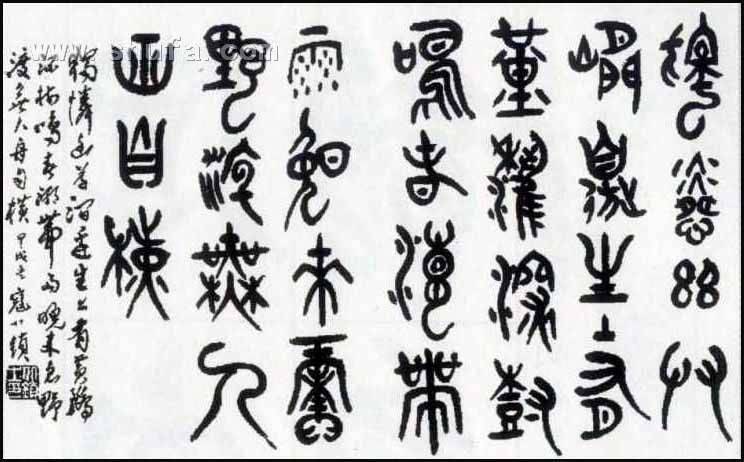 獨憐幽草
澗邊生上有
黃鸝深樹
鳴春潮帶
雨晚來急
野渡無人
舟自橫
獨憐幽草澗邊生上有黃鸝
深樹鳴春潮帶雨晚來急野
渡無人舟自橫 甲戌
www.shufa.com